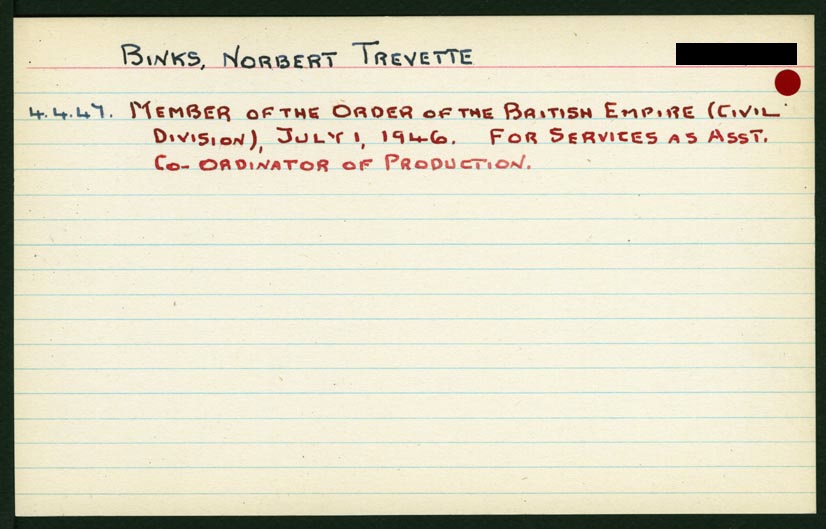 BINKS, NORBERT TREVETTE
4.4.47. MEMBER OF THE ORDER OF THE BRITISH EMPIRE (CIVIL
DIVISION), JULY 1, 1946. FOR SERVICES AS ASST.
CO-ORDINATOR OF PRODUCTION.